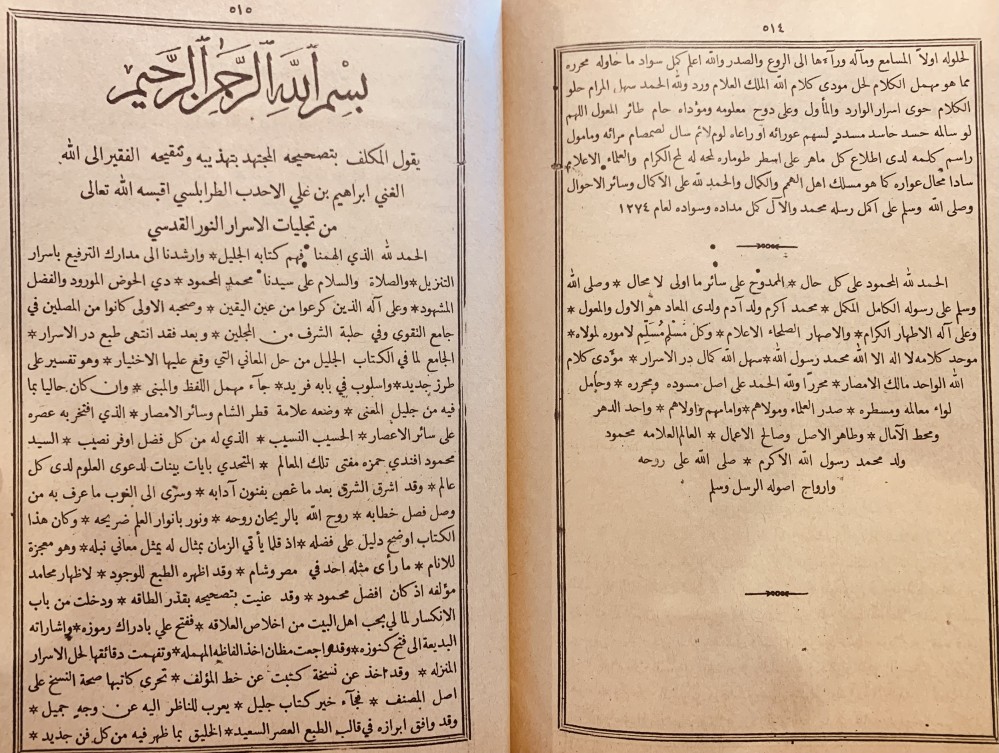 ٥١٤
لحلوله اولاً المسامع ومآله ورآءها الى الروع والصدر والله اعلم كمل سواد ما حاوله محرره
مما هو مهمل الكلام لحل مودى كلام الله الملك العلام ورد ولله الحمد سهل المرام حلو
الكلام حوى اسرار الوارد والمأول وعلى دوح معلومه ومؤداه حام طائر المعول اللهم
لو سالمه حسد حاسد مسدد لسهم عورائه او راعاه لوم لائم سال لصمصام مرائه ومامول
راسم كلمه لدى اطلاع كل ماهر على اسطر طوماره لمحه له لمح الكرام والعلماء الاعلام
سادا محال عواره كما هو مسلك اهل الهمم والكمال والحمد لله على الاكمال وسائر الاحوال
وصلى الله وسلم على اكمل رسله محمد والآل كمل مداده وسواده لعام ١٢٧٤
الحمد لله المحمود على كل حال * الممدوح على سائر ما اولى لا محال * وصلى الله
وسلم على رسوله الكامل المكمل * محمد اكرم ولد آدم ولدى المعاد هو الاول والمعول *
وعلى آله الاطهار الكرام * والاصهار الصلحاء الاعلام * وكل مسلم مُسَلِّم لاموره لمولاه *
موحد كلامه لا اله الا الله محمد رسول الله * سهل الله كمال در الاسرار * مؤدى كلام
الله الواحد مالك الامصار * محررا ولله الحمد على اصل مسوده ومحرره * وحامل
لواء معالمه ومسطره * صدر العلماء ومولاهم * وامامهم واولاهم * واحد الدهر
ومحط الآمال * وطاهر الاصل وصالح الاعمال * العالم العلامه محمود
ولد محمد رسول الله الاكرم * صلى الله على روحه
وارواح اصوله الرسل وسلم
٥١٥
بسم الله الرحمن الرحيم
يقول المكلف بتصحيحه المجتهد بتهذيبه وتنقيحه الفقير الى الله
الغني ابراهيم بن علي الاحدب الطرابلسي اقبسه الله تعالى
من تجليات الاسرار النور القدسي
الحمد لله الذي الهمنا فهم كتابه الجليل * وارشدنا الى مدارك الترفيع باسرار
التنزيل * والصلاة والسلام على سيدنا محمد المحمود * ذي الحوض المورود والفضل
المشهود * وعلى آله الذين كرعوا من عين اليقين * وصحبه الاولى كانوا من المصلين في
جامع التقوى وفي حلبة الشرف من المجلين * وبعد فقد انتهى طبع در الاسرار *
الجامع لما في الكتاب الجليل من حل المعاني التي وقع عليها الاختيار * وهو تفسير على
طرز جديد * واسلوب في بابه فريد * جآء مهمل اللفظ والمبنى * وان كان حاليا بما
فيه من جليل المعنى * وضعه علامة قطر الشام وسائر الامصار * الذي افتخر به عصره
على سائر الاعصار * الحسيب النسيب * الذي له من كل فضل اوفر نصيب * السيد
محمود افندي حمزه مفتى تلك المعالم * التحدي بايات بينات لدعوى العلوم لدى كل
عالم * وقد اشرق الشرق بعد ما غص بفنون آدابه * وسرى الى الغرب ما عرف به من
وصل فصل خطابه * روح الله بالريحان روحه * ونور بانوار العلم ضريحه * وكان هذا
الكتاب اوضح دليل على فضله * اذ قلما يأتي الزمان بمثال له يمثل معاني نبله * وهو معجزة
للانام * ما رأى مثله احد في مصر وشام * وقد اظهره الطبع للوجود * لاظهار محامد
مؤلفه اذ كان افضل محمود * وقد عنيت بتصحيحه بقدر الطاقه * ودخلت من باب
الانكسار لما لي بحب اهل البيت من اخلاص العلاقه * ففتح علي بادراك رموزه * واشاراته
البديعة الى فتح كنوزه * وقد راجعت مظان اخذ الفاظه المهمله * وتفهمت دقائقها لحل الاسرار
المنزله * وقد اخذ عن نسخة كتبت عن خط المؤلف * تحرى كاتبها صحة النسخ على
اصل المصنف * فجآء خير كتاب جليل * يعرب للناظر اليه عن وجه جميل *
وقد وافق ابرازه في قالب الطبع العصر السعيد * الخليق بما ظهر فيه من كل فن جديد *